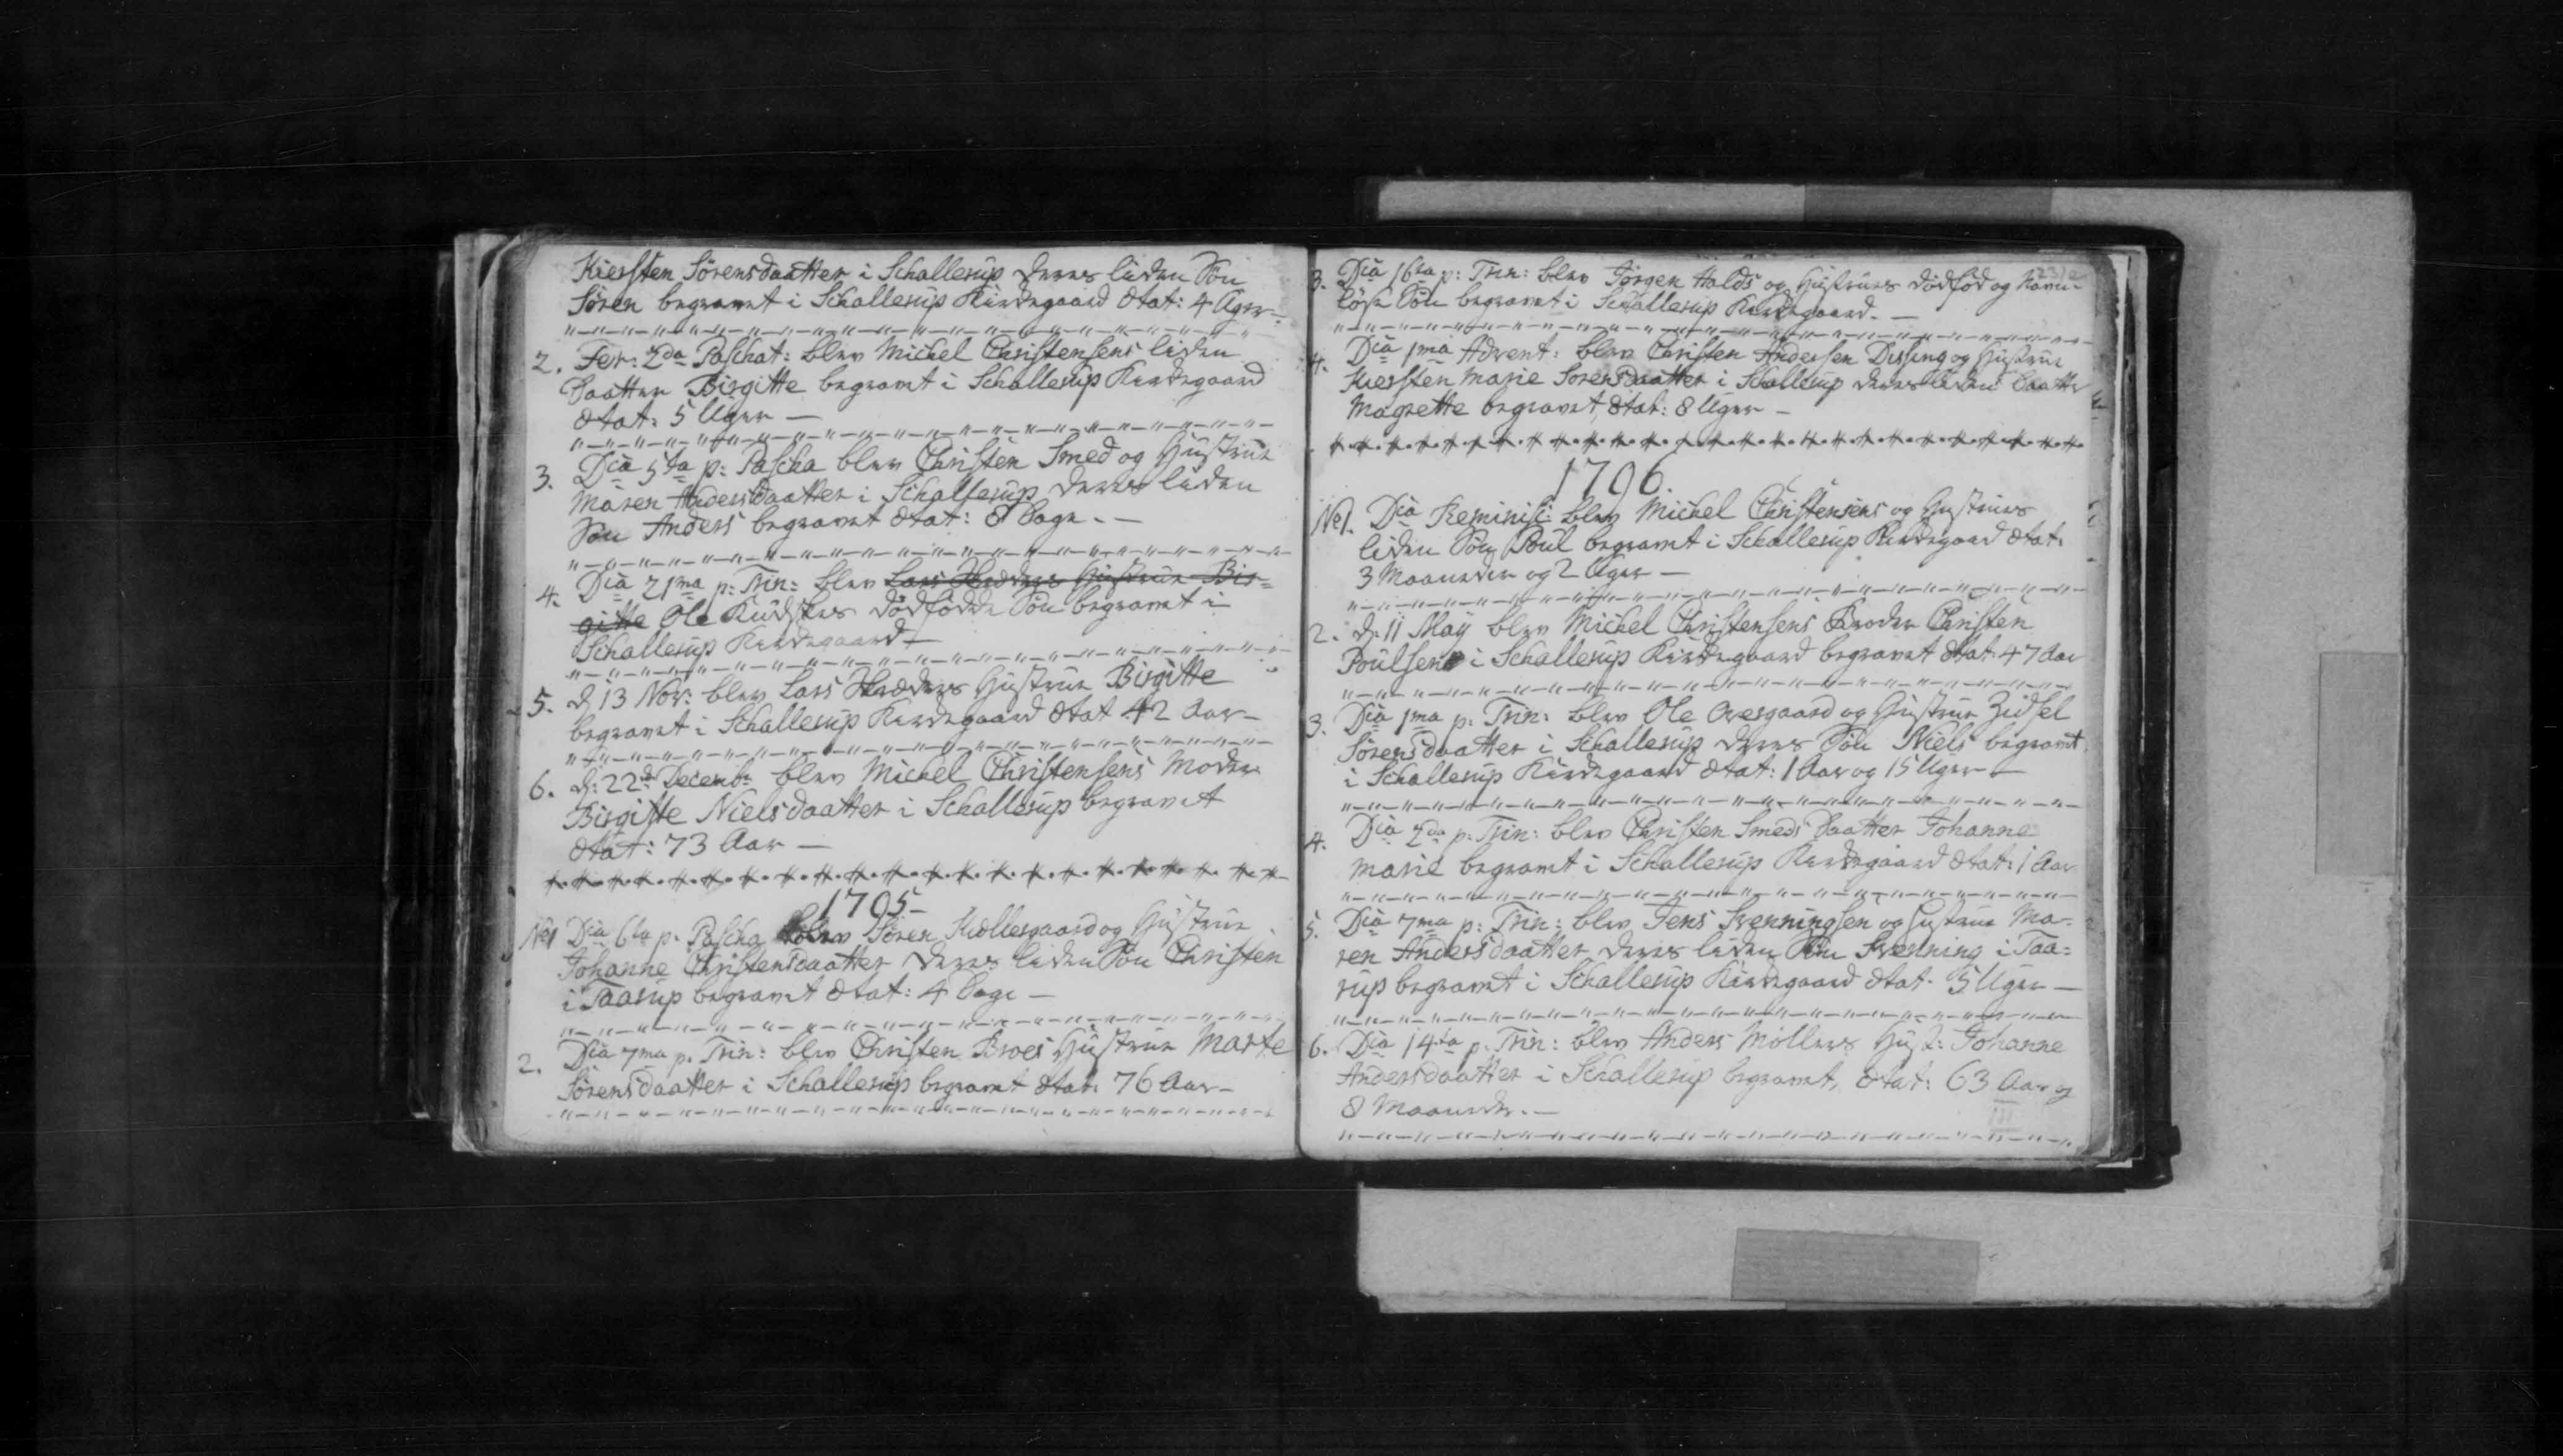 Kiersten Sörensdaatter i Schallerup deres liden Sön
Sören begravet i Schallerup Kirkegaard ætat: 4 Uger
2. Fer: 2da Paschat: blev Michel Christensens liden
Daatter Birgitte begravet i Schallerup Kirkegaard
ætat: 5 Uger —
3. Dca 5ta p: Pascha blev Christen Smed og Hustrue
Maren Andersdaatter i Schallerup deres liden
Sön Anders begravet ætat: 8 Dage. —
4. Dca 21ma p: Trin: blev Lars Hustrue Bir-
gitte Ole dödfödde Sön begravet i
Schallerup Kirkegaard —
5. d: 13 Nov: blev Lars Hustrue Birgitte
begravet i Schallerup Kirkegaard ætat 42 Aar —
6. d: 22de Decembr blev Michel Christensens Moder
Birgitte Nielsdaatter i Schallerup begravet
ætat: 73 Aar —
1795
No1 Dca 6ta p. Pascha blev Sören Kiællergaard og Hustrue
Johanne Christensdaatter deres liden Sön Christen
i Taarup begravet ætat: 4 Dage —
2. Dca 7ma p. Trin: blev Christen Broes Hustrue Marte
Sörensdaatter i Schallerup begravet ætat: 76 Aar —
3. Dca 16ta p: Trin: blev Jörgen Holds og Hustrues dödföd og Navn-
löse Sön begravet i Schallerup Kirkegaard. —
4. Dca 1ma Advent: blev Christen Andersen Dissing og Hustrue
Kiersten Marie Sorensdaatter i Schallerup deres liden Daatter
Magrette begravet, ætat: 8 Uger —
1796.
No1. Dca Reminisc: blev Michel Christensens og Hustrues
liden Sön Poul begravet i Schallerup Kirkegaard ætat:
3 Maaneder og 2 Uger —
2. d: 11 May blev Michel Christensens Broder Christen
Poulsen i Schallerup Kirkegaard begravet ætat: 47 Aar
3. Dca 1ma p: Trin: blev Ole Overgaard og Hustrue Zidsel
Sörensdaatter i Schallerup deres Sön Niels begravet
i Schallerup Kirkegaard ætat: 1 Aar og 15 Uger —
4. Dca 2da p: Trin: blev Christen Smeds Daatter Johanne
Marie begravet i Schallerup Kirkegaard ætat: 1 Aar
5. Dca 7ma p: Trin: blev Jens Svenningsen og Hustrue Ma-
ren Andersdaatter deres liden Sön Svenning i Taa=
rup begravet i Schallerup Kirkegaard ætat. 5 Uger —
6. Dca 14ta p: Trin: blev Anders Möllers Hust: Johanne
Andersdaatter i Schallerup begravet, ætat: 63 Aar og
8 Maaneder. —